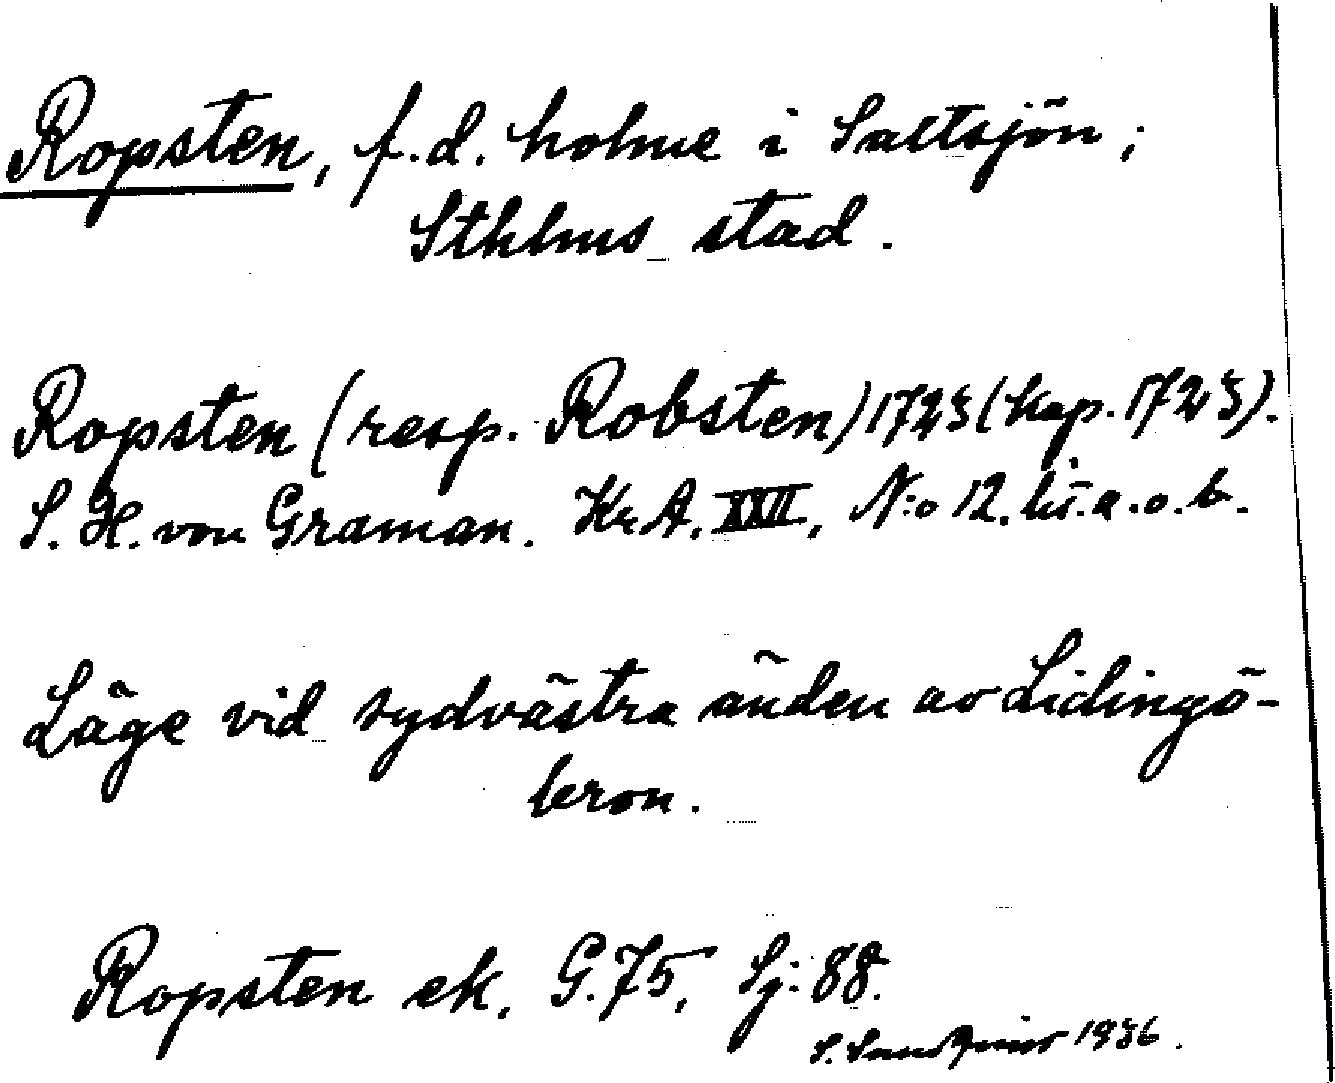 Ropsten, f.d. holme i Saltsjön;
Sthlms stad.
Ropsten (resp. Robsten) 1723 (kop. 1723).
S. H. von Graman. Kr.A. XXII, N:o 12. lit. a. o. b.
Läge vid sydvästra änden av Lidingö-
bron.
Ropsten ek. G. 75, Sj: 88.
S. 1936.